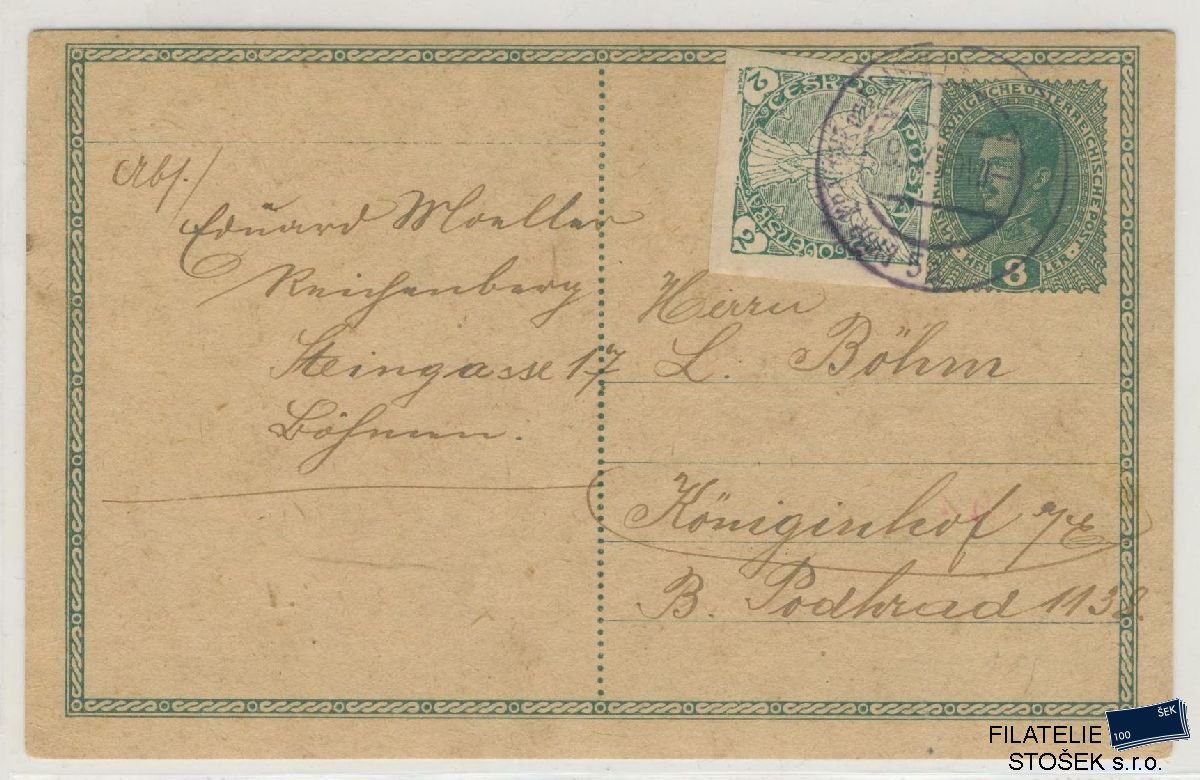 Abs./
Eduard Moeller
Reichenberg
Steingasse 17
Böhmen.
2
ČESKO
POŠTA
2
52
KÖNIGLICHE ÖSTERREICHISCHE POST
8
Herrn
L. Böhm
Königinhof a/E
B. Podhrad 1138.
ŠEK
100
FILATELIE
STOŠEK s.r.o.